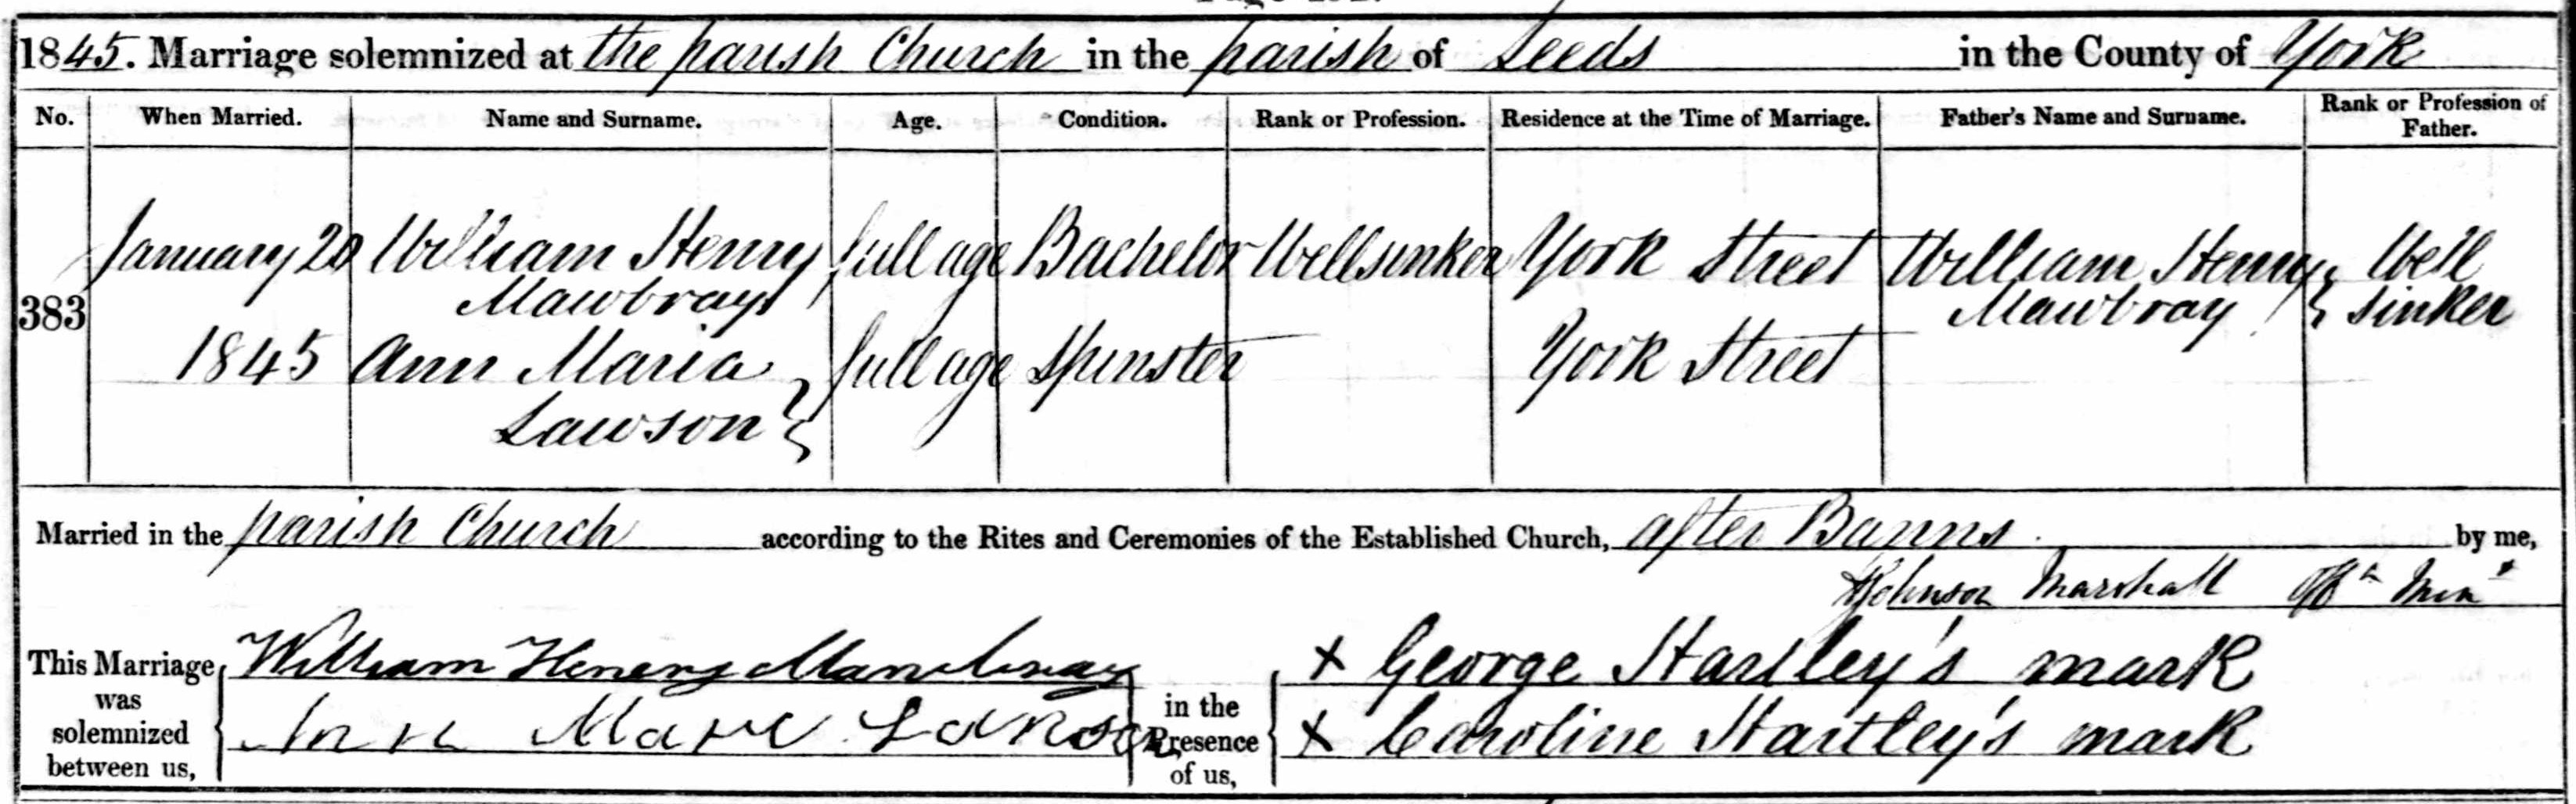 1845. Marriage solemnized at the parish Church in the parish of Leeds in the County of York
No. When Married. Name and Surname. Age. Condition. Rank or Profession. Residence at the Time of Marriage. Father's Name and Surname. Rank or Profession of Father.
383
January 20 William Henry full age Bachelor Wellsinker York Street William Henry Well
Mawbray Mawbray sinker
1845 Ann Maria full age Spinster York Street
Lawson
Married in the parish Church according to the Rites and Ceremonies of the Established Church, after Banns by me,
Johnson Marshall Offg Minr
This Marriage was solemnized between us, William Henery
Ann
in the Presence of us,
X George Hartley's mark
X Caroline Hartley's mark